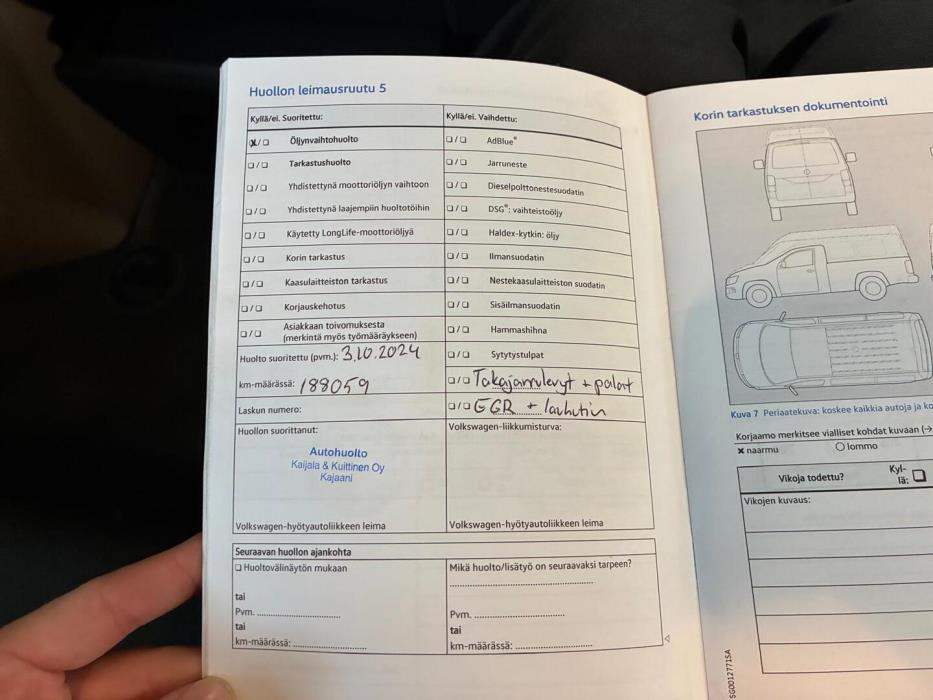 Huollon leimausruutu 5
Kyllä/ei. Suoritettu:
Öljynvaihtohuolto
Tarkastushuolto
Yhdistettynä moottoriöljyn vaihtoon
Yhdistettynä laajempiin huoltotöihin
Käytetty LongLife-moottoriöljyä
Korin tarkastus
Kaasulaitteiston tarkastus
Korjauskehotus
Asiakkaan toivomuksesta
(merkintä myös työmääräykseen)
Huolto suoritettu (pvm.): 3.10.2024
km-määrässä: 188059
Laskun numero:
Huollon suorittanut:
Autohuolto
Kaijala & Kuittinen Oy
Kajaani
Volkswagen-hyötyautoliikkeen leima
Kyllä/ei. Vaihdettu:
AdBlue®
Jarruneste
Dieselpolttonestesuodatin
DSG®: vaihteistoöljy
Haldex-kytkin: öljy
Ilmansuodatin
Nestekaasulaitteiston suodatin
Sisäilmansuodatin
Hammashihna
Sytytystulpat
Takajarrulevyt + palat
EGR + lauhdutin
Volkswagen-liikkumisturva:
Volkswagen-hyötyautoliikkeen leima
Seuraavan huollon ajankohta
Huoltovälinäytön mukaan
tai
Pvm.
tai
km-määrässä:
Mikä huolto/lisätyö on seuraavaksi tarpeen?
Pvm.
tai
km-määrässä:
Korin tarkastuksen dokumentointi
Kuva 7 Periaatekuva: koskee kaikkia autoja ja
Korjaamo merkitsee vialliset kohdat kuvaan
naarmu
lommo
Vikoja todettu?
Kyl-
lä:
Vikojen kuvaus:
SG0012771SA